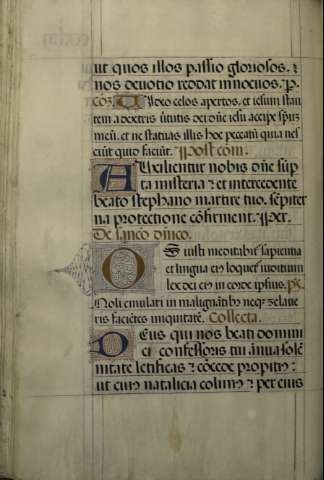 ut quos illos passio gloriosos. ⁊
nos deuotio reddat innocuos. P.
Video celos apertos, et iesum stan
tem a dextris uirtutis dei dñe iesu accipe spm̃
meũ. et ne statuas illis hoc peccatũ quia nes
ciũt quid faciũt. Post com̃.
Auxilientur nobis dñe sũp
ta misteria ⁊ et intercedente
beato stephano martire tuo, sẽpiter
na protectione cõfirment. Per.
De sancto dñico.
Os iusti meditabit᷑ sapientia
et lingua ei᷑ loquet᷑ iuditium
lex dei ei᷑ in corde ipsius. ps.
Noli emulari in malignantib᷑ neq᷑ zelaue
ris faciẽtes iniquitatẽ. Collecta.
Deus qui nos beati domini
ci confessoris tui ãnua solẽ
nitate letificas ⁊ cõcede propiti᷑ ⁊
ut cui᷑ natalicia colim᷑ ⁊ per eius